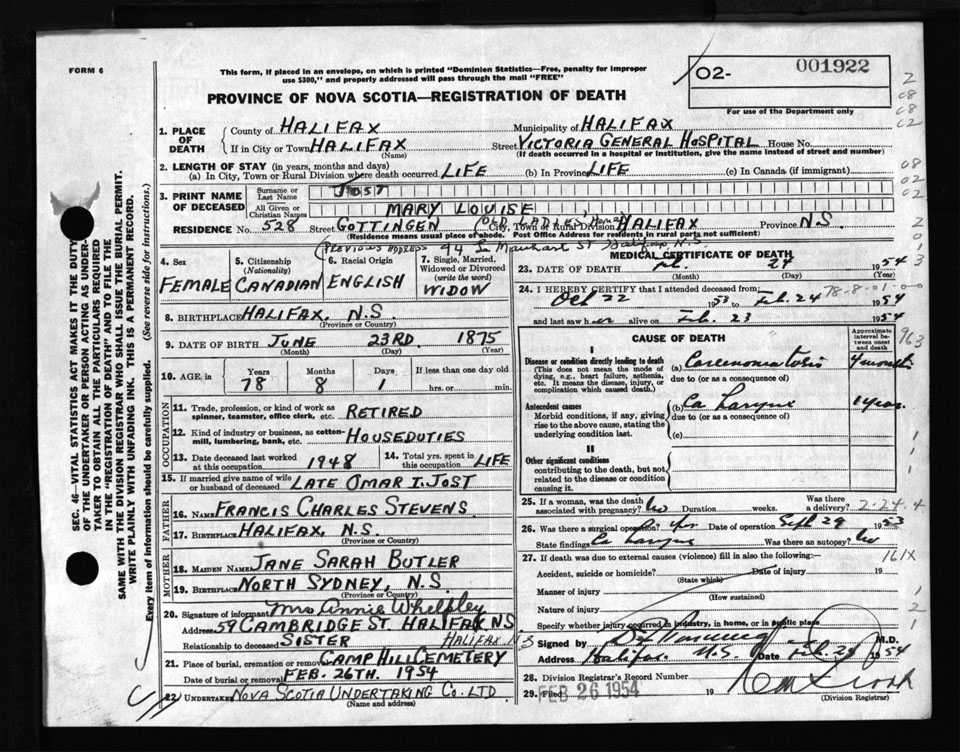 FORM 6
This form, if placed in an envelope, on which is printed "Dominion Statistics—Free, penalty for improper
use $300," and properly addressed will pass through the mail "FREE"
PROVINCE OF NOVA SCOTIA—REGISTRATION OF DEATH
02- 001922
For use of the Department only
2
08
08
02
1. PLACE OF DEATH
County of HALIFAX Municipality of HALIFAX
If in City or Town HALIFAX (Name) Street VICTORIA GENERAL HOSPITAL House No.
(If death occurred in a hospital or institution, give the name instead of street and number)
2. LENGTH OF STAY (in years, months and days)
(a) In City, Town or Rural Division where death occurred LIFE (b) In Province LIFE (c) In Canada (if immigrant)
08
02
02
3. PRINT NAME OF DECEASED
Surname or Last Name JOST
All Given or Christian Names MARY LOUISE
RESIDENCE No. 528 Street GOTTINGEN (OLD LADIES HOME) City, Town or Rural Division HALIFAX Province N.S
(Residence means usual place of abode. Post Office Address for residents in rural parts not sufficient)
PREVIOUS ADDRESS 94 Halifax, N.S.
4. Sex FEMALE
5. Citizenship (Nationality) CANADIAN
6. Racial Origin ENGLISH
7. Single, Married, Widowed or Divorced (write the word) WIDOW
8. BIRTHPLACE HALIFAX, N.S
(Province or Country)
9. DATE OF BIRTH JUNE 23RD 1875
(Month) (Day) (Year)
10. AGE in Years 78 Months 8 Days 1 If less than one day hrs. or min.
OCCUPATION
11. Trade, profession, or kind of work as
spinner, teamster, office clerk, etc. RETIRED
12. Kind of industry or business, as cotton-
mill, lumbering, bank, etc. HOUSEDUTIES
13. Date deceased last worked at this occupation 1948 14. Total yrs. spent in this occupation LIFE
15. If married give name of wife
or husband of deceased LATE OMAR I. JOST
FATHER
16. NAME FRANCIS CHARLES STEVENS
17. BIRTHPLACE HALIFAX, N.S.
(Province or Country)
MOTHER
18. MAIDEN NAME JANE SARAH BUTLER
19. BIRTHPLACE NORTH SYDNEY, N.S
(Province or Country)
20. Signature of informant Mrs Annie Whelpley
Address 59 CAMBRIDGE ST. HALIFAX NS
Relationship to deceased SISTER HALIFAX N S
21. Place of burial, cremation or removal CAMP HILL CEMETERY
Date of burial or removal FEB. 26TH. 1954
22. UNDERTAKER NOVA SCOTIA UNDERTAKING CO. LTD
(Name and address)
MEDICAL CERTIFICATE OF DEATH
23. DATE OF DEATH Feb. 24 1954
(Month) (Day) (Year)
24. I HEREBY CERTIFY that I attended deceased from: 78-8-01-00
Oct 22 1953 to Feb. 24 1954
and last saw her alive on Feb. 23 1954
CAUSE OF DEATH
Approximate interval between onset and death
963
I
Disease or condition directly leading to death
(This does not mean the mode of
dying, e.g., heart failure, asthenia,
etc. It means the disease, injury, or
complication which caused death.)
(a) Carcinomatosis 4 months
due to (or as a consequence of)
Antecedent causes
Morbid conditions, if any, giving
rise to the above cause, stating the
underlying condition last.
(b) Ca Larynx 1 year
due to (or as a consequence of)
(c)
II
Other significant conditions
contributing to the death, but not
related to the disease or condition
causing it.
25. If a woman, was the death associated with pregnancy? No Duration weeks. Was there a delivery? 2-24-4
26. Was there a surgical operation? Yes Date of operation Sept 29 1953
State findings Ca Larynx Was there an autopsy? No
27. If death was due to external causes (violence) fill in also the following:— 161X
Accident, suicide or homicide? (State which) Date of injury 19
Manner of injury
(How sustained)
Nature of injury
Specify whether injury occurred in industry, in home, or in public place
Signed by M.D.
Address Halifax N.S. Date Feb. 1954
28. Division Registrar's Record Number
29. Filed FEB 26 1954 19
(Division Registrar)
SEC. 46—VITAL STATISTICS ACT MAKES IT THE DUTY
OF THE UNDERTAKER OR PERSON ACTING AS UNDER-
TAKER TO OBTAIN ALL THE PARTICULARS REQUIRED
IN THE "REGISTRATION OF DEATH" AND TO FILE THE
SAME WITH THE DIVISION REGISTRAR WHO SHALL ISSUE THE BURIAL PERMIT.
WRITE PLAINLY WITH UNFADING INK. THIS IS A PERMANENT RECORD.
Every item of information should be carefully supplied. (See reverse side for instructions.)